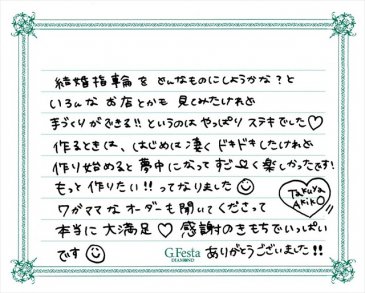 結婚指輪を どんなものにしようかな?と
いろんな お店とかも 見てみたけれど
手づくりができる!!というのは やっぱり ステキでした♡
作るときは、はじめは凄く ドキドキしたけれど
作り始めると 夢中になって すごーく 楽しかったです!
もっと 作りたい!!ってなりました☺
Takuya
Akiko
ワガママな オーダーも 聞いてくださって
本当に 大満足♡ 感謝のきもちでいっぱい
です☺
G.Festa
DIAMOND
ありがとうございました!!